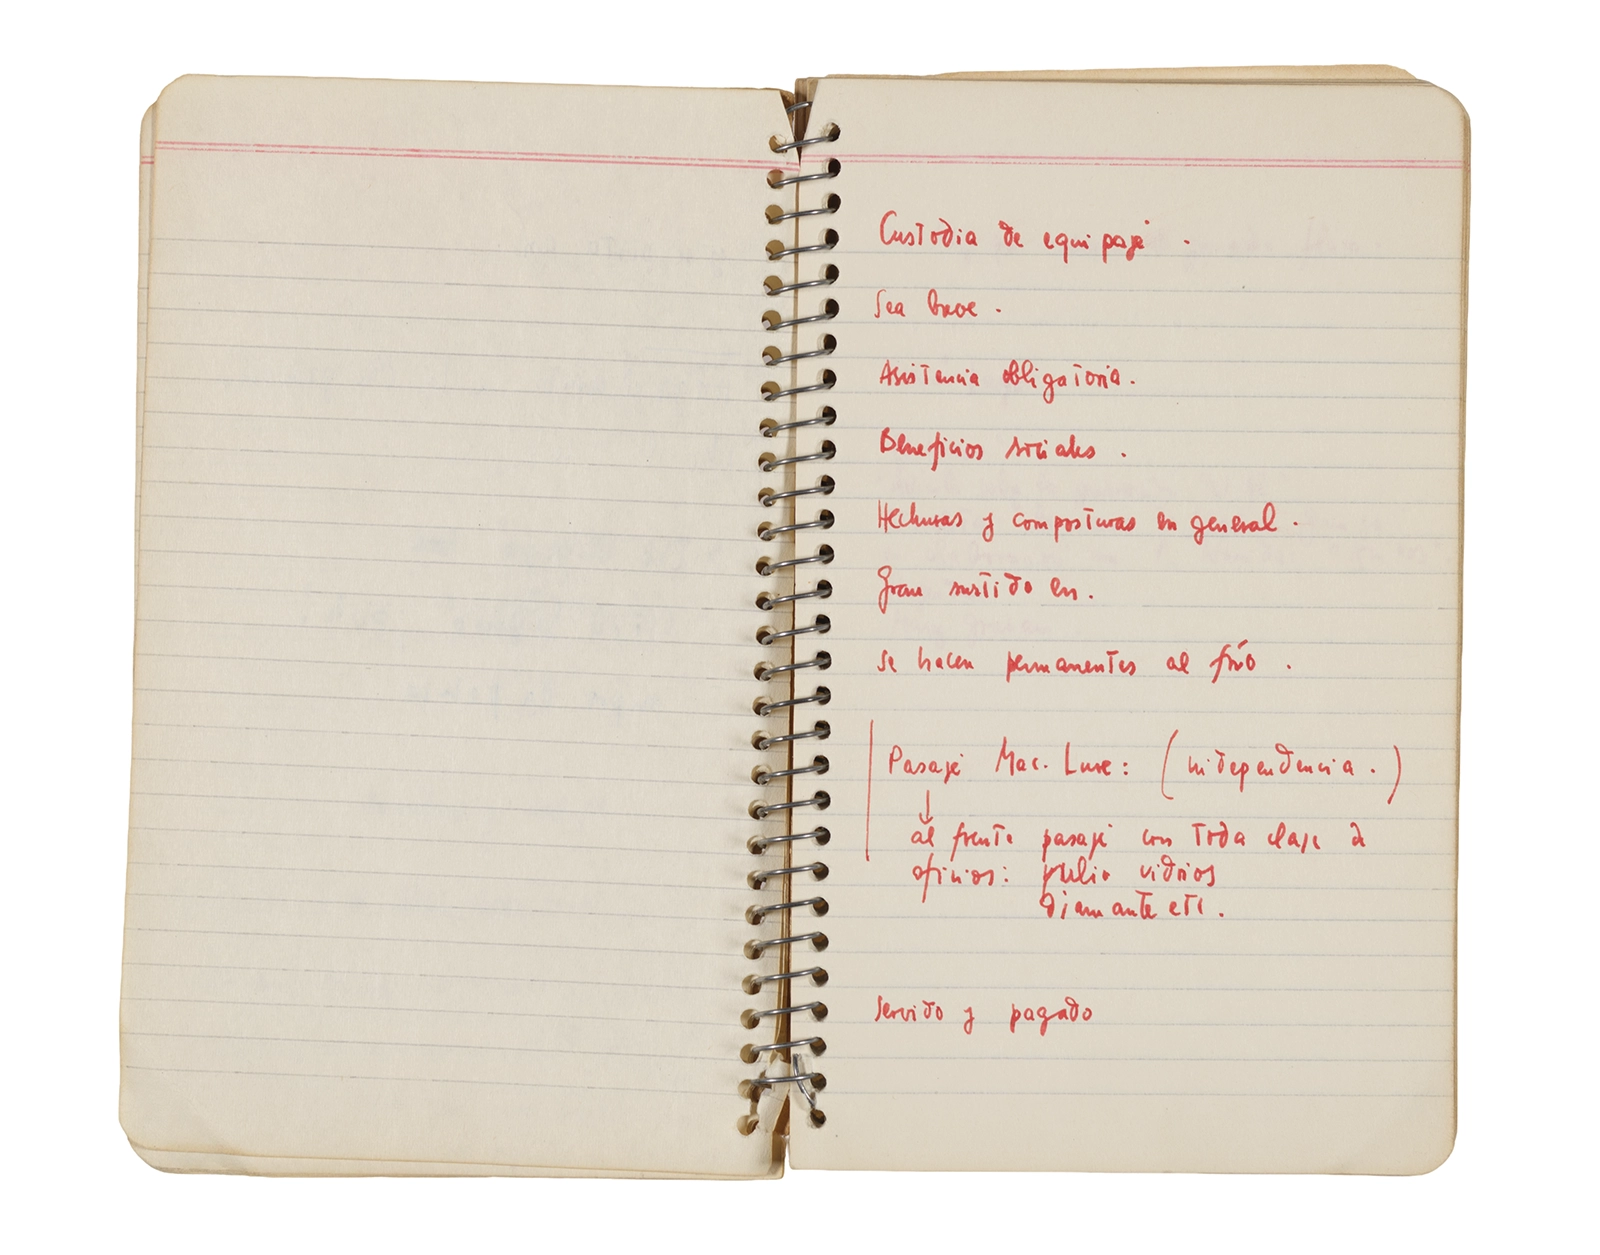 Custodia de equipaje.
Sea breve.
Asistencia obligatoria.
Beneficios sociales.
Hechuras y composturas en general.
Gran surtido en.
Se hacen permanentes al frío.
Pasaje Mac. Lure: (independencia.)
↓
al frente pasaje con toda clase de
oficios: vidrios
diamante etc.
Servido y pagado